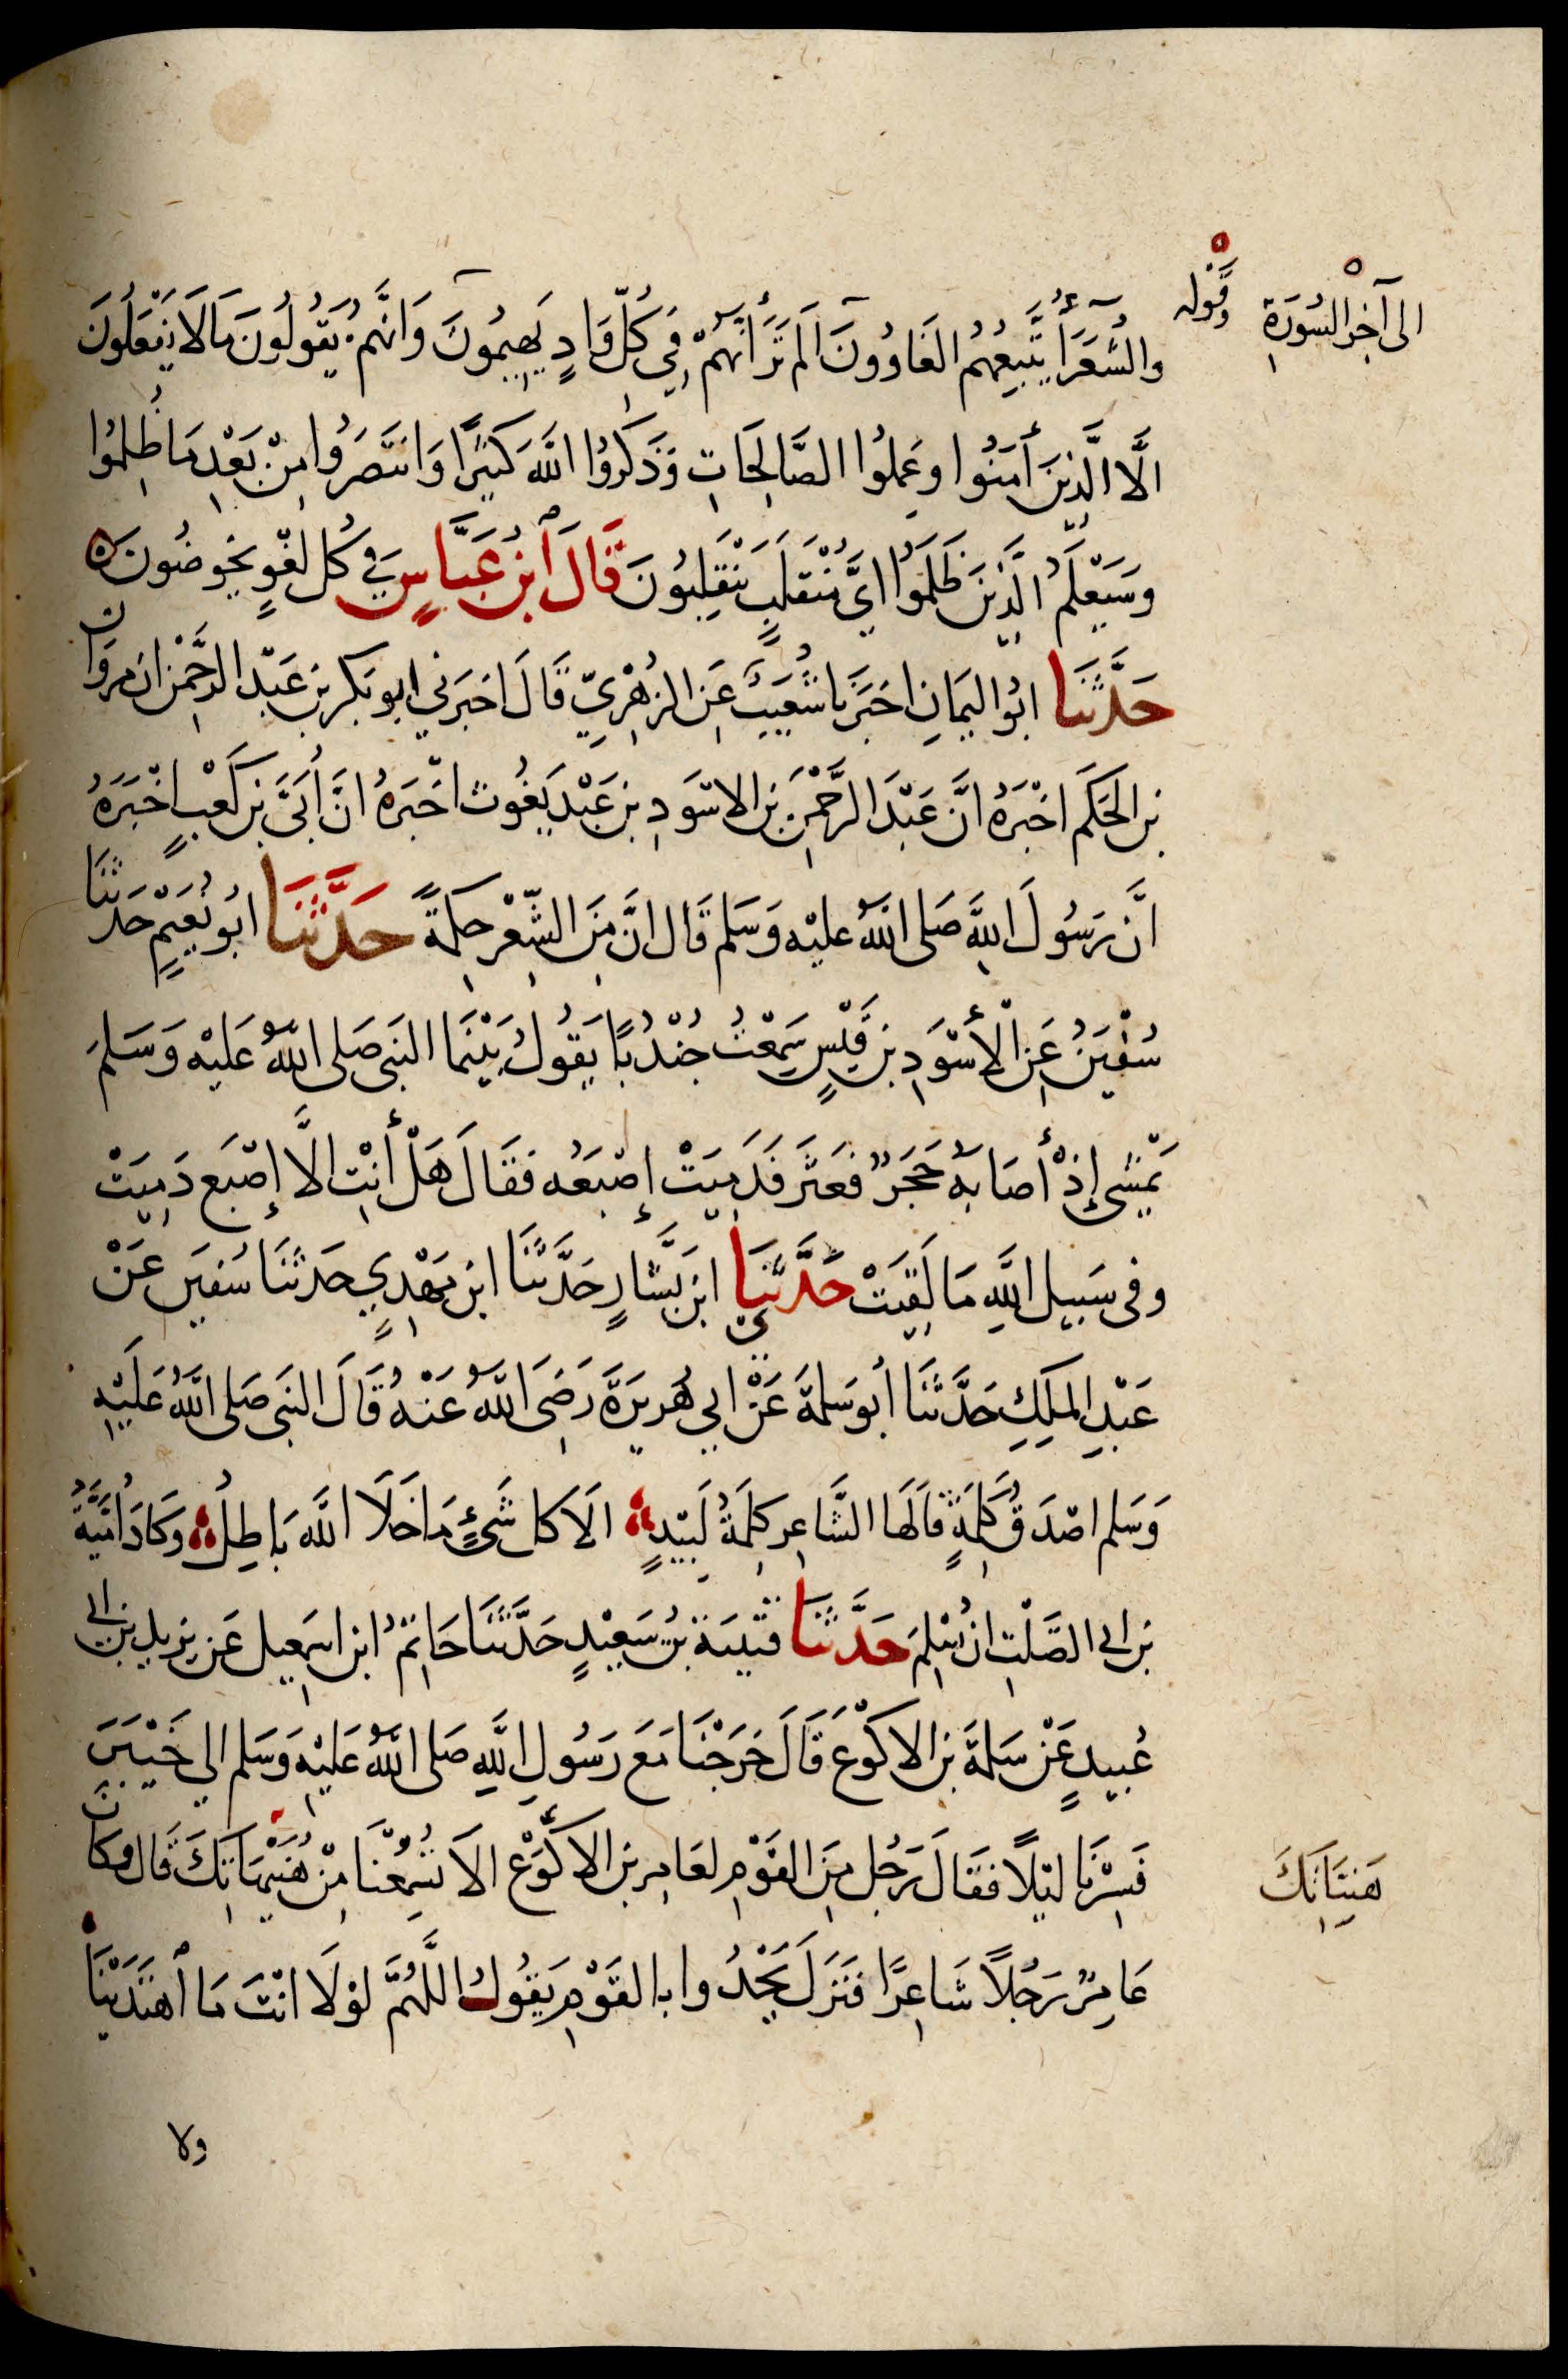 الى آخِرِ السُّورَةِ
وَقَوله
والشُّعَرَآءُ يَتَّبِعُهُمُ الغَاوُونَ اَلَمْ تَرَ أَنَّهُمْ فِي كُلِّ وَادٍ يَهِيمُونَ وَاَنَّهُمْ يَقُولُونَ مَالَا يَفْعَلُونَ
الَّا الَّذِينَ أٰمَنُوا وعَمِلُوا الصَّالِحَاتِ وَذَكَرُوا اللَّهَ كَثِيرًا وَانتَصَرُوا مِنْ بَعْدِ مَا ظُلِمُوا
وَسَيَعْلَمُ الَّذِينَ ظَلَمُوا ايَّ مُنْقَلَبٍ يَنْقَلِبُونَ قَالَ ابنُ عَبَّاسٍ فِي كُلِّ لغْوٍ يخُوضُونَ
حَدَّثَنَا ابُو اليَمَانِ اخبَرَنَا شُعَيبٌ عَنِ الزهْرِيِّ قَالَ اخبَرَني ابو بَكرِ بنِ عَبْدِ الرحْمٰنِ انَّ مَروَانَ
بنَ الحَكَمِ اخْبَرَهُ انَّ عَبْدَ الرَّحْمٰنِ بنَ الاسْوَدِ بنِ عَبْدِ يَغُوث اخْبَرَهُ انَّ أُبَيَّ بنَ كَعْبٍ اخْبَرَهُ
انَّ رَسُولَ اللَّهِ صَلى اللَّهُ عليْهِ وَسَلم قَال انَّ مِنَ الشِّعْرِ حِكمةً حَدَّثَنَا ابُو نُعَيْمٍ حَدثَنَا
سُفْيَنُ عَنِ الأَسْوَدِ بنِ قَيْسٍ سَمِعْتُ جُنْدُبًا يَقُولُ بَيْنَمَا النبَى صَلى اللَّهُ عَلَيْهِ وَسَلمَ
يَمْشِى إِذْ أَصَابَهُ حَجَرٌ فعَثَرَ فَدَمِيَتْ إصْبَعُه فَقَالَ هَلْ أَنْتِ الَّا إِصْبَع دَمِيَتْ
وفى سَبِيل اللَّهِ مَا لَقِيَتْ حَدَّثَنَا ابن بَشَّارٍ حَدَّثَنَا ابن مَهْدِيٍ حَدثَنَا سُفيَن عَنْ
عَبْدِ المَلِكِ حَدَّثَنَا أَبُو سَلمَةَ عَنْ ابي هُرَيرَةَ رَضِىَ اللَّهُ عَنْهُ قَالَ النبَى صَلى اللَّهُ عَلَيْهِ
وَسَلم اصْدَقُ كَلِمَةٍ قَالَهَا الشَّاعِرِ كَلِمَةُ لَبِيْدٍ الَا كل شَىْءٍ مَا خَلَا اللَّه بَاطِلُ وَكَادَ أُمَيَّةُ
بن ابى الصَّلْتِ ان يُسْلِمَ حَدَّثَنَا قتَيْبَة بنُ سَعِيْدٍ حَدَّثَنَا حَاتِمُ ابن اسمَعِيل عَن يزِيدِ بن ابى
عُبيدٍ عَنْ سَلمَةَ بن الاكْوَعِ قَالَ خَرَجْنَا مَعَ رَسُولِ اللَّهِ صَلى اللَّهُ عَلَيْهِ وَسَلم الى خَيْبَرَ
فَسِرْنَا ليْلًا فقَالَ رَجُل مِنَ القَوْمِ لعَامِرِ بن الاكْوَعِ الَا تُسْمِعُنَا مِنْ هُنَيْهَاتِكَ قَال وكَانَ
هَنِيَّاتِكَ
عَامِرٌ رَجُلًا شَاعِرًا فَنَزَلَ يَحْدُوا بِالقَوْمِ يَقُولُ اللَّهُمَّ لوْلَا انْتَ مَا اهْتَدَيْنَا
ولا